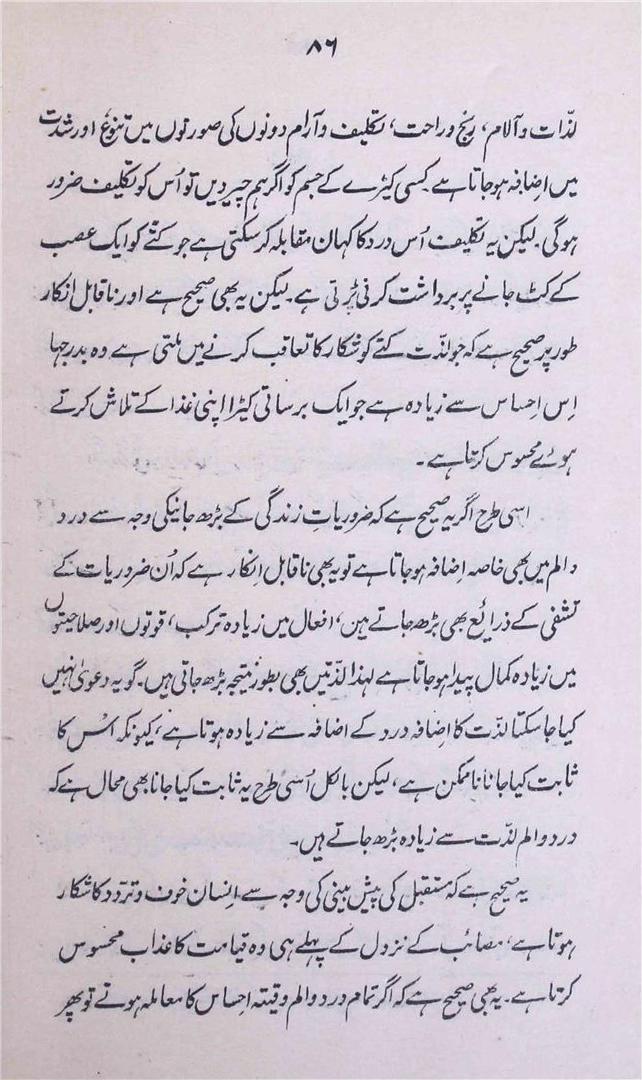 ۸۶
لذّات و آلام، رنج و راحت، تکلیف و آرام دونوں کی صورتوں میں تنوّع اور شدت
میں اضافہ ہوجاتا ہے کسی کیڑے کے جسم کو اگر ہم چیر دیں تو اُس کو تکلیف ضرور
ہوگی۔ لیکن یہ تکلیف اُس درد کا کہان مقابلہ کر سکتی ہے جو کتّے کو ایک عصب
کے کٹ جانے پر برداشت کرنی پڑتی ہے۔ لیکن یہ بھی صحیح ہے اور ناقابل انکار
طور پر صحیح ہے کہ جو لذّت کتے کو شکار کا تعاقب کرنے میں ملتی ہے وہ بدرجہا
اِس اِحساس سے زیادہ ہے جو ایک برساتی کیڑا اپنی غذا کے تلاش کرتے
ہوئے محسوس کرتا ہے۔
اسی طرح اگر یہ صحیح ہے کہ ضروریاتِ زندگی کے بڑھ جانیکی وجہ سے درد
و الم میں بھی خاصہ اِضافہ ہوجاتا ہے تو یہ بھی ناقابل اِنکار ہے کہ اُن ضروریات کے
تشفی کے ذرائع بھی بڑھ جاتے ہین، افعال میں زیادہ ترکب، قوتوں اور صلاحیتوں
میں زیادہ کمال پیدا ہوجاتا ہے لہذا لذّتیں بھی بطور نتیجہ بڑھ جاتی ہیں۔ گو یہ دعویٰ نہیں
کیا جا سکتا لذّت کا اِضافہ درد کے اضافہ سے زیادہ ہوتا ہے، کیونکہ اس کا
ثابت کیا جانا ناممکن ہے، لیکن بالکل اُسی طرح یہ ثابت کیا جانا بھی محال ہے کہ
درد و الم لذّت سے زیادہ بڑھ جاتے ہیں۔
یہ صحیح ہے کہ مستقبل کی پیش بینی کی وجہ سے اِنسان خوف و تردّد کا شکار
ہوتا ہے، مصائب کے نزول کے پہلے ہی وہ قیامت کا عذاب محسوس
کرتا ہے۔ یہ بھی صحیح ہے کہ اگر تمام درد و الم وقیتہ احساس کا معاملہ ہوتے تو پھر